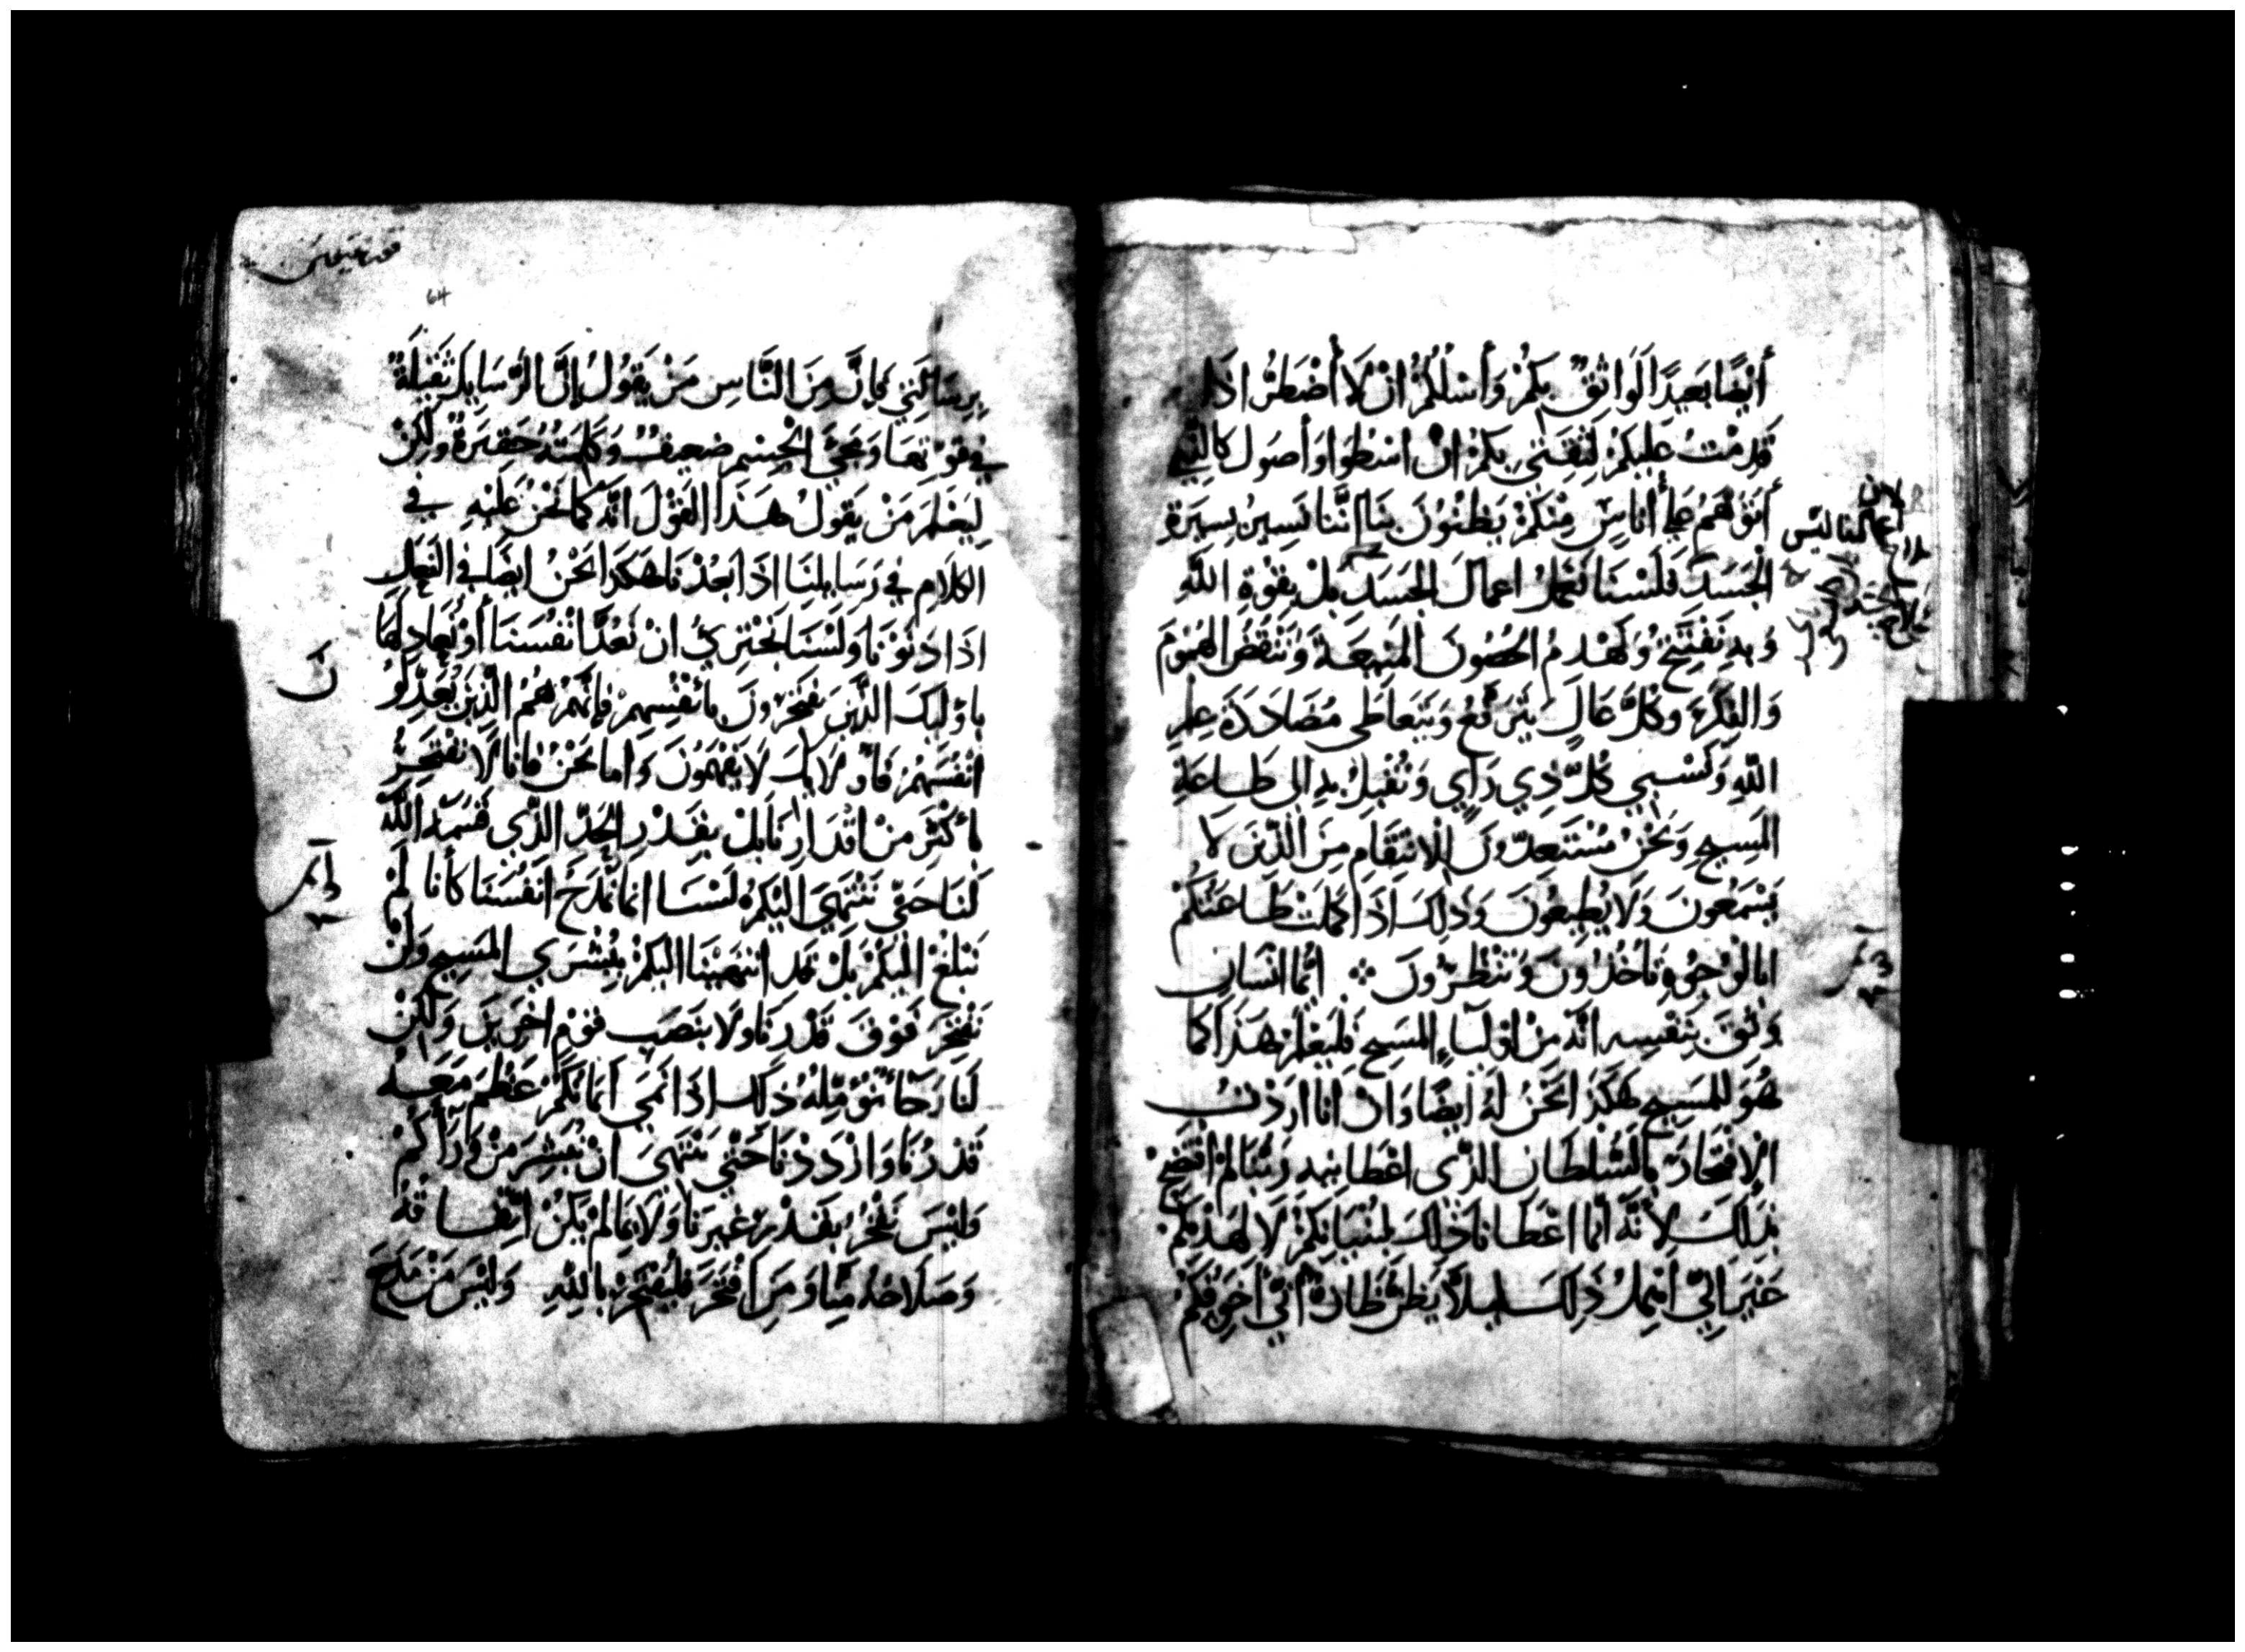 أَيْضًا بَعِيدًا لَوَاثِقٌ بِكُمْ وَأَسْلُكُمْ انْ لَا أُضْطَرُّ اذَا
قَدِمْتُ عَلَيْكُمْ لِثِقَتِي بِكُمْ انْ اسْطُوَا وَأصُول كَالَّتِي
أَتَوَهَّمُ عَلَى أُنَاسٍ مِنْكُمْ يَظُنُّونَ بِنَا انَّنَا نَسِيرُ بِسِيرَةِ
الْجَسَدِ فَلَسْنَا نَعْمَلُ اعمَالَ الجَسَدِ بَلْ بِقُوَّةِ اللَّهِ
وَبِهِ نَفْتَتِحُ وَنَهْدِمُ الحُصُونَ المَنِيعَةَ وَنَنْقُضُ الهُمُومَ
وَالفِكْرَ وَكُلَّ عَالٍ يَتَرَفَّعُ وَيَتَعَاطَى مُضَادَدَةَ عِلْمِ
اللَّهِ وَنَسْبِي كُلَّ ذِي رَاْيٍ وَنُقْبِلُ بِهِ الى طَاعَةِ
المَسِيحِ وَنَحْنُ مُسْتَعِدُّونَ لِلانْتِقَامِ مِنَ الَّذِينَ لَا
يَسْمَعُونَ وَلَا يُطِيعُونَ وَذَلِكَ اذَا كَمُلَتْ طَاعَتُكُمْ
ابالوُجُوهِ تَأخُذُونَ وَتَنْظُرُونَ ۞ ايُّمَا انْسَانٍ
وَثِقَ بِنَفْسِهِ انَّهُ مِنْ اوْلِيَاءِ المَسِيحِ فَلْيَعْلَمْ هَذَا كمَا
هُوَ للمَسِيحِ هَكَذَا نَحْنُ لَهُ ايْضًا وَانْ انَا ارَدْتُ
الْإِفْتِخَارَ بِالسُّلْطَانِ الَّذِي اعْطَانِيهِ رَبُّنَا لَمْ افْتَضِحْ
بِذَلِكَ لِأَنَّهُ انَّمَا اعْطَانَا ذَلِكَ لِبُنْيَانِكُمْ لَا لِهَدْمِكُمْ
غَيْرَ انِّي اُهْمِلُ ذَلِكَ لِيلَّا يَظُنَّ ظَانٌّ انِّي أُخَوِّفُكُمْ
لان
اعمالنا ليس
64
بِرِسَالَتِي فَإِنَّ مِنَ النَّاسِ مَنْ يَقُولُ إِنَّ الرَّسَايِلَ ثَقِيلَةٌ
فِي قُوَّتِهَا وَمَجِيَّ الْجِسْمِ ضَعِيفٌ وَكَلِمَتُهُ حَقِيرَةٌ وَلَكِنْ
لِيَعْلَمَ مَنْ يَقُولُ هَذَا القَوْلَ انَّهُ كمَا نَحْنُ عَلَيْهِ فِي
الكَلَامِ فِي رَسَايِلِنَا اذَا بَعُدْنَا هَكَذَا نَحْنُ ايْضًا فِي الفِعْلِ
اذَا دَنَوْنَا وَلَسْنَا نَجْتَرِئُ انْ نَعُدَّ انْفُسَنَا أَوْ نُعَادِلَهَا
بِاوْلَيِكَ الَّذِينَ يَفْتَخِرُونَ بِأَنْفُسِهِمْ فَإِنَّهُمْ هُمُ الَّذِينَ يُعَدِّلُوا
انْفُسَهُمْ فَاوُلَايِكَ لَا يَفْهَمُونَ وَامَا نَحْنُ فَانَا لَا نَفْتَخِرُ
بِأَكْثَرَ مِنْ اقْدَارِنَا بَلْ بِقَدْرِ الحَدِّ الَّذِي قَسَمَهُ اللَّهُ
لَنَا حَتَّى نَنْتَهِيَ الَيْكُمْ لَسْنَا انمَا نَمْدَحُ انْفُسَنَا كَأَنَّا لَمْ
نَبْلُغْ الَيْكُمْ بَلْ قَد انْتَهَيْنَا الَيْكُمْ بِبُشْرَى المَسِيحِ وَلَنْ
نَفْتَخِرَ فَوْقَ قَدْرِنَا وَلَا بِنَصَبِ قَوْمٍ اخَرِينَ وَلَكِنْ
لَنَا رَجَاءٌ نُؤَمِّلُهُ ذَلِكَ اذَا نَمِيَ ايمَانُكُمْ عَظُمَ مَعَهُ
قَدْرُنَا وَازْدَدْنَا حَتَّى نَنْتَهِيَ انْ نُبَشِّرَ مَنْ وَرَآكُمْ
وَلَيْسَ نَفْخَرُ بِقَدْرِ غَيْرِنَا وَلَا بِمَا لَمْ يَكُنْ اتِّفَاقُهُ
وَصَلَاحُهُ مِنَّا وَمَنِ افْتَخَرَ فَلْيَفْتَخِرْ بِاللَّهِ وَلَيْسَ مَنْ مَدَحَ